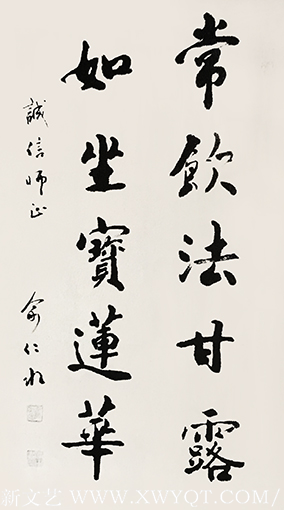 常飲法甘露
如坐寶蓮華
誠信師正
俞仁水
新文艺 WWW.XWYQT.COM/